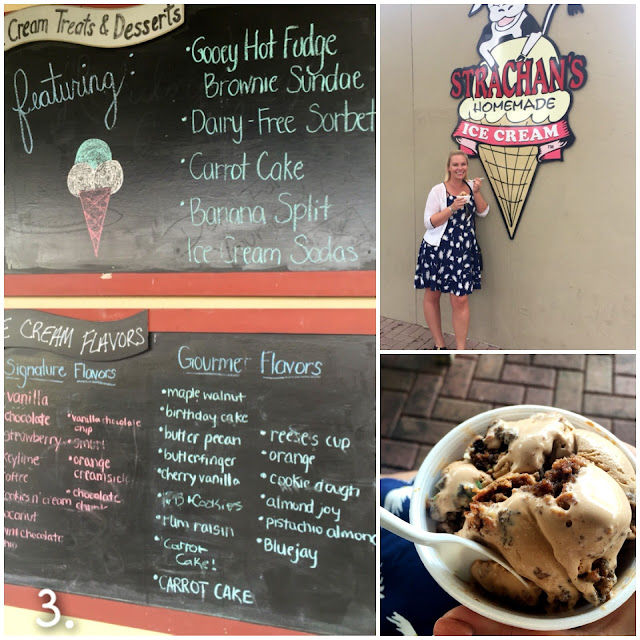 Cream Treats & Desserts
featuring:
• Gooey Hot Fudge
Brownie Sundae
• Dairy-Free Sorbet
• Carrot Cake
• Banana Split
Ice Cream Sodas
STRACHAN'S
HOMEMADE
ICE CREAM
TM
CREAM FLAVORS
Signature Flavors
vanilla
chocolate
strawberry
keylime
coffee
cookies n' cream
coconut
mint chocolate
chip
• vanilla chocolate
chip
• orange
creamsicle
• chocolate
chunk
Gourmet Flavors
• maple walnut
• birthday cake
• butter pecan
• butterfinger
• cherry vanilla
• Cookies
• rum raisin
• Carrot
Cake!
• CARROT CAKE
• reese's cup
• orange
• cookie dough
• almond joy
• pistachio almond
• Bluejay
3.